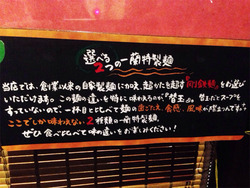 選べる
2つの一蘭特製麺
当店では、創業以来の自家製麺に加え、超かたを超す
いただけます。この麺の違いを特に味わえるのが"替玉"。替玉だとスープを
すっていないので、一杯目と比べて麺の歯ごたえ、食感、風味が際立つんです。
ここでしか味わえない、2種類の一蘭特製麺。
ぜひ食べ比べて味の違いをお楽しみください!